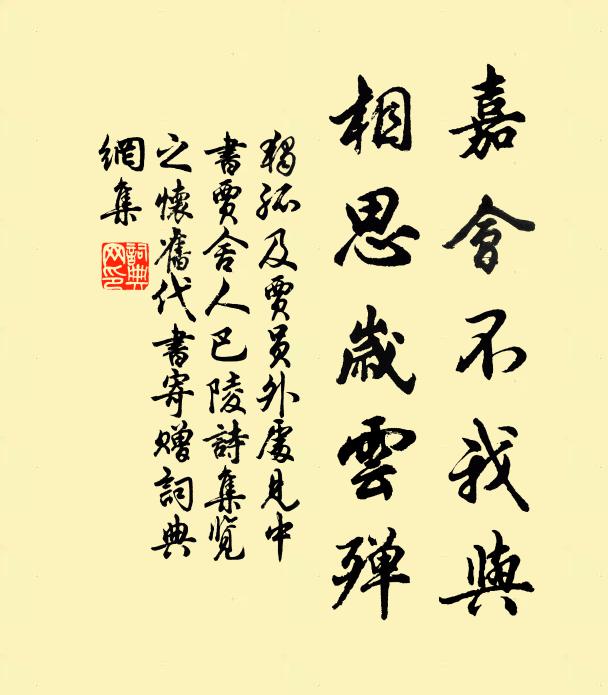 嘉會不我與
相思歲雲殫
獨孤及賈員外處見中
書賈舍人巴陵詩集覽
之懷舊代書寄贈詞典
網集
詞典
网印